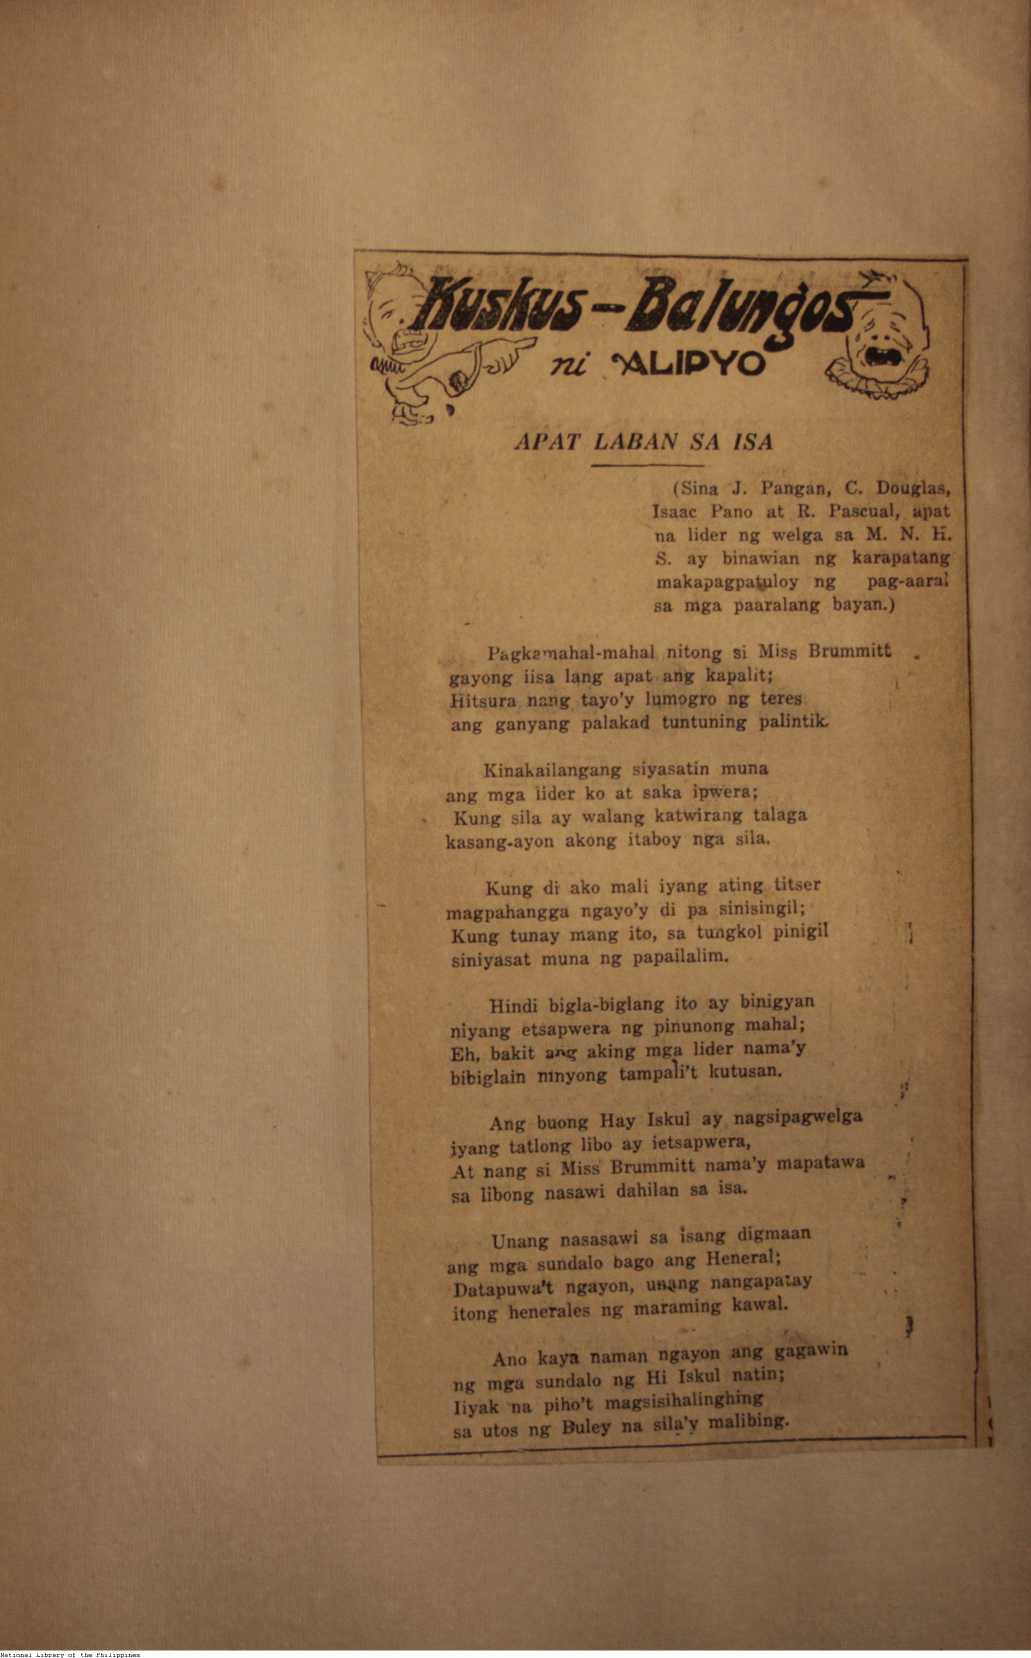 Kuskus-Balungos
ni ALIPYO
APAT LABAN SA ISA
(Sina J. Pangan, C. Douglas,
Isaac Pano at R. Pascual, apat
na lider ng welga sa M. N. H.
S. ay binawian ng karapatang
makapagpatuloy ng pag-aaral
sa mga paaralang bayan.)
Pagkamahal-mahal nitong si Miss Brummitt
gayong iisa lang apat ang kapalit;
Hitsura nang tayo'y lumogro ng teres
ang ganyang palakad tuntuning palintik.
Kinakailangang siyasatin muna
ang mga lider ko at saka ipwera;
Kung sila ay walang katwirang talaga
kasang-ayon akong itaboy nga sila.
Kung di ako mali iyang ating titser
magpahangga ngayo'y di pa sinisingil;
Kung tunay mang ito, sa tungkol pinigil
siniyasat muna ng papailalim.
Hindi bigla-biglang ito ay binigyan
niyang etsapwera ng pinunong mahal;
Eh, bakit ang aking mga lider nama'y
bibiglain ninyong tampali't kutusan.
Ang buong Hay Iskul ay nagsipagwelga
iyang tatlong libo ay ietsapwera,
At nang si Miss Brummitt nama'y mapatawa
sa libong nasawi dahilan sa isa.
Unang nasasawi sa isang digmaan
ang mga sundalo bago ang Heneral;
Datapuwa't ngayon, unang nangapatay
itong henerales ng maraming kawal.
Ano kaya naman ngayon ang gagawin
ng mga sundalo ng Hi Iskul natin;
Iiyak na piho't magsisihalinghing
sa utos ng Buley na sila'y malibing.
National Library of the Philippines